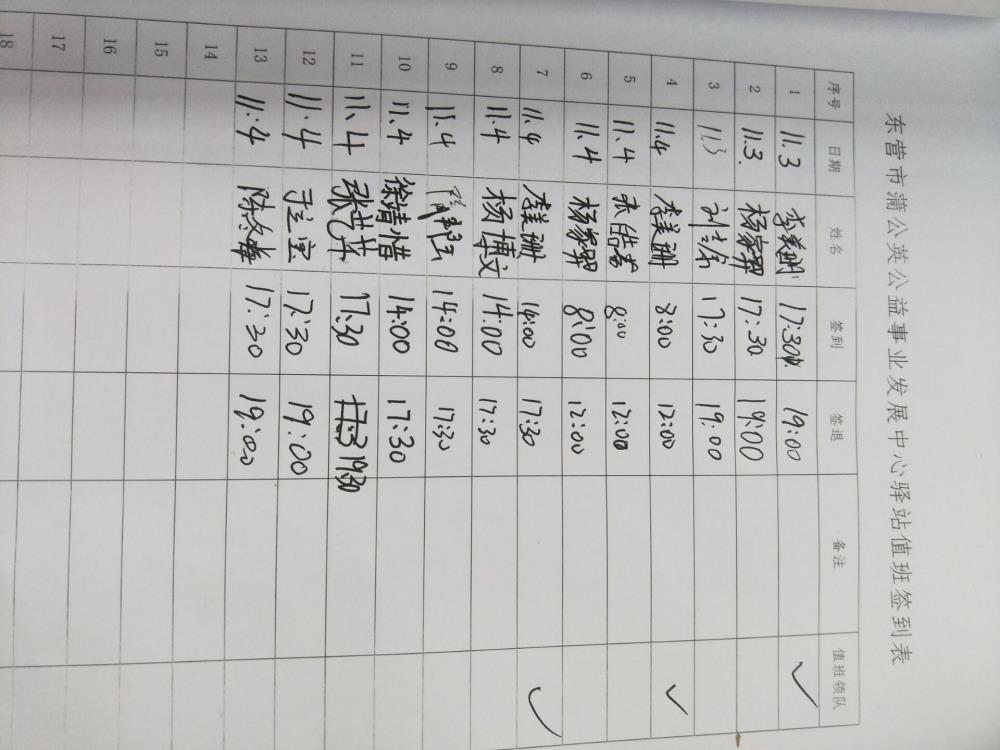 东营市蒲公英公益事业发展中心驿站值班签到表
序号 日期 姓名 签到 签退 备注 值班领队
1 11.3 李美珊 17:30 19:00 ✓
2 11.3 杨家骅 17:30 19:00
3 11.3 17:30 19:00
4 11.4 李美珊 8:00 12:00 ✓
5 11.4 8:00 12:00
6 11.4 杨家骅 8:00 12:00
7 11.4 李美珊 14:00 17:30 ✓
8 11.4 杨博文 14:00 17:30
9 11.4 14:00 17:30
10 11.4 徐靖惜 14:00 17:30
11 11.4 张艺英 17:30 19:30
12 11.4 于立宝 17:30 19:00
13 11.4 陈冬梅 17:30 19:00
14
15
16
17
18